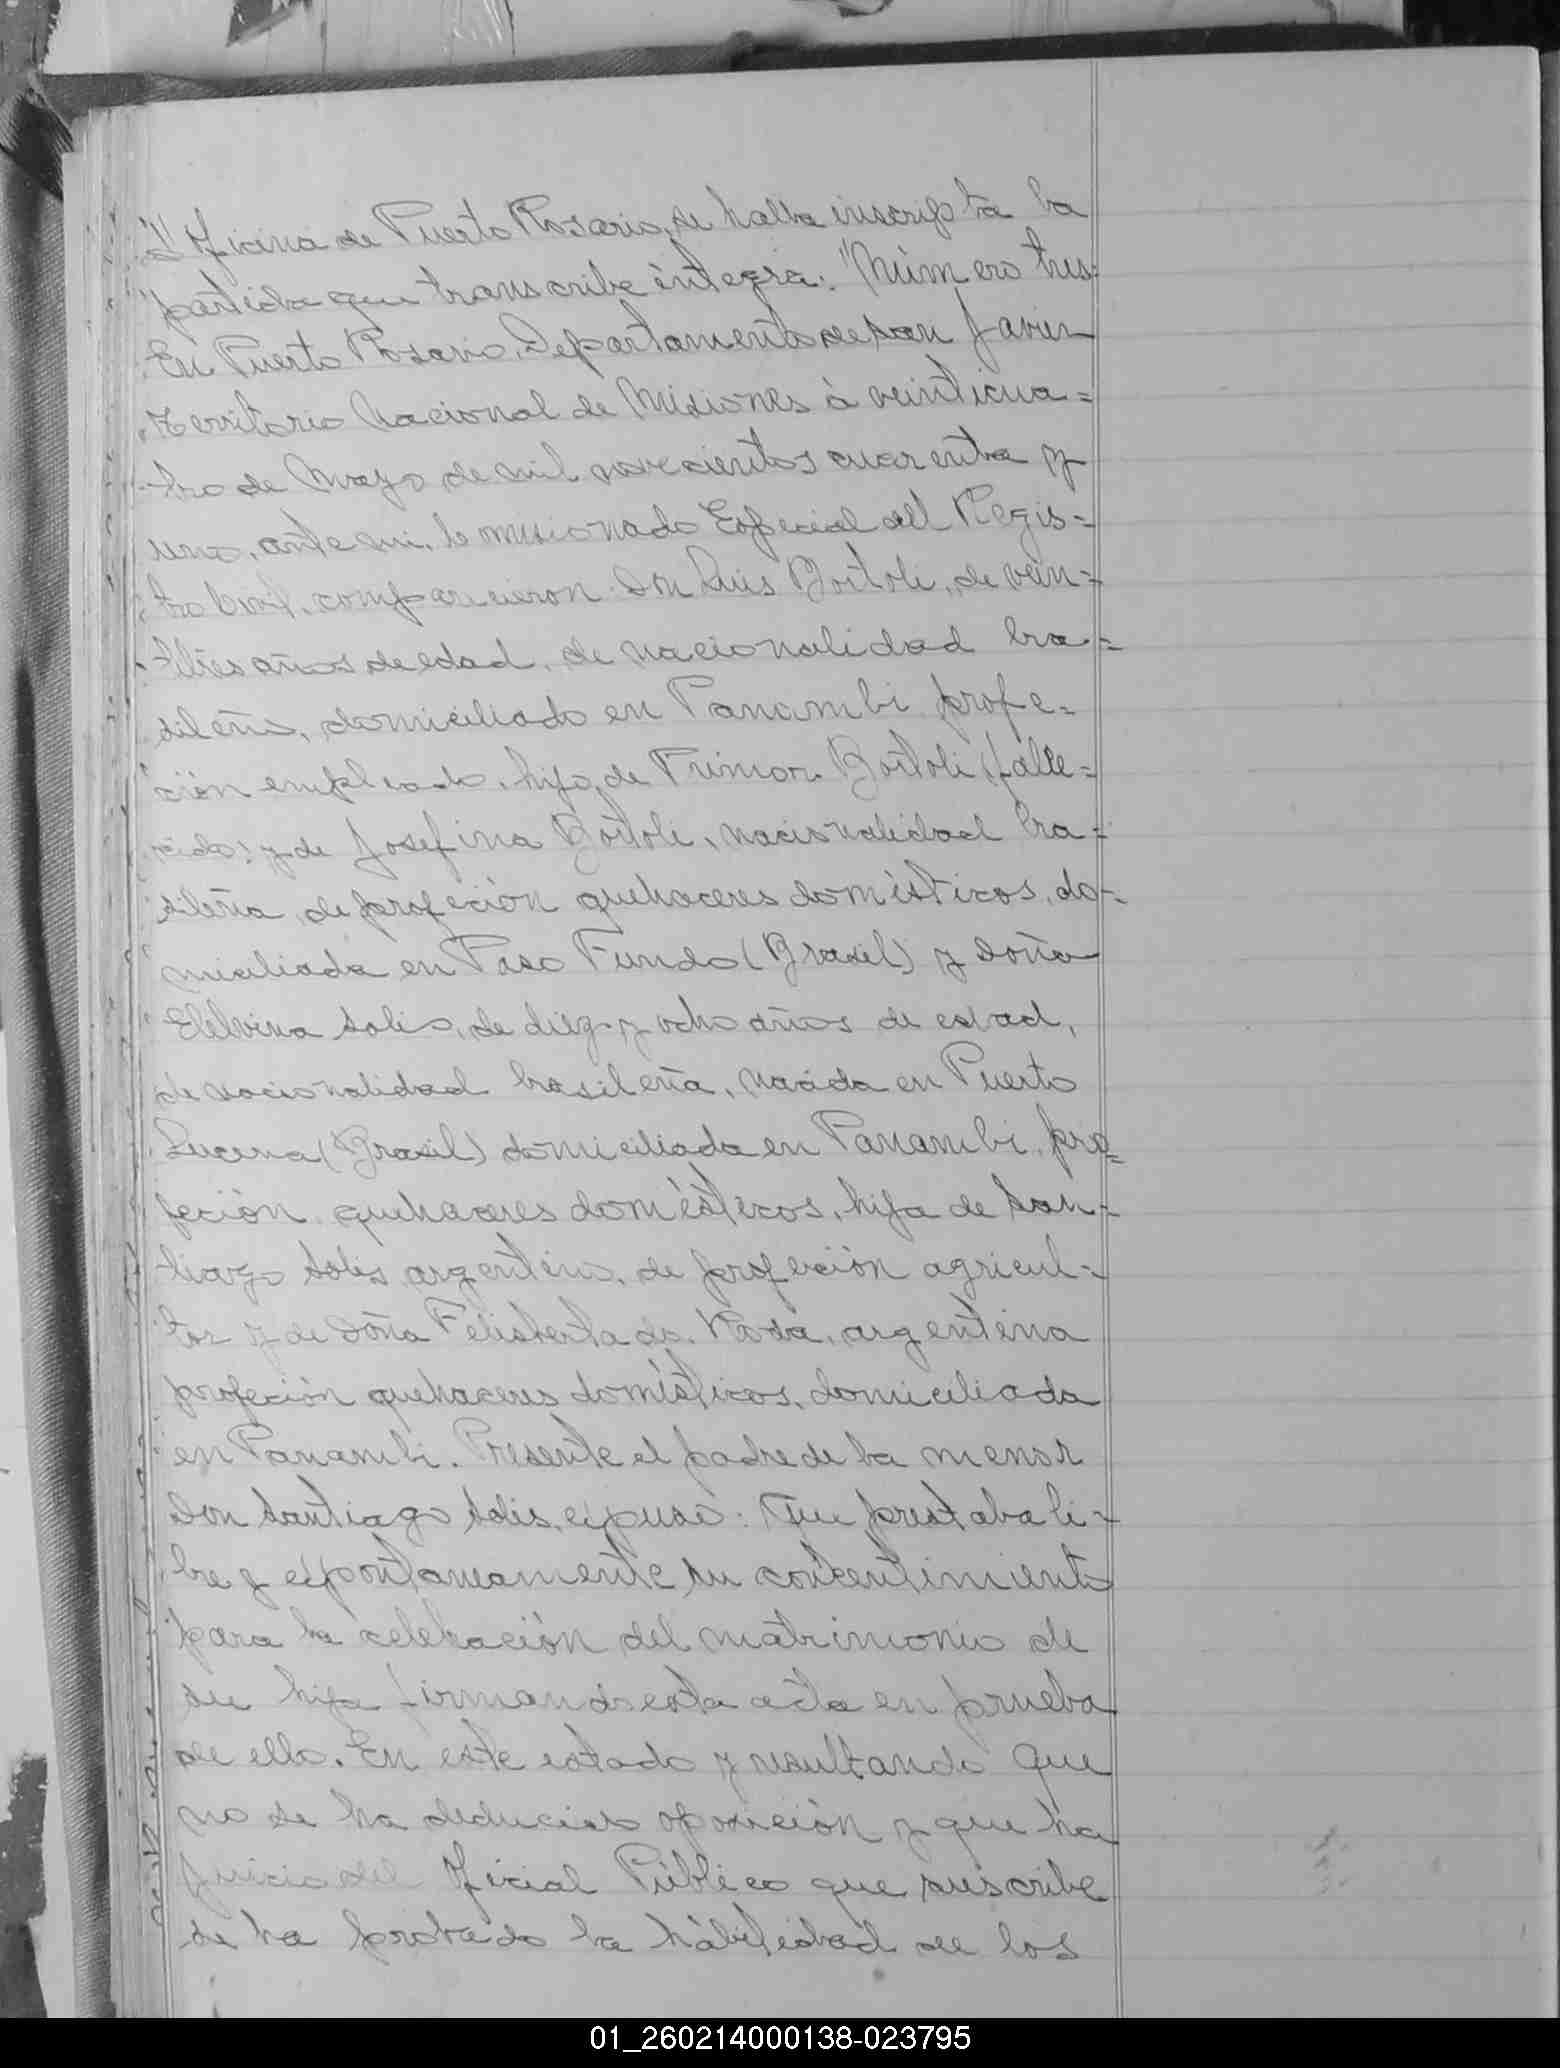 Oficina de Puerto Rosario, se halla inscripta la
partida que transcribe íntegra: "Número tres=
En Puerto Rosario, Departamento de San Javier
Territorio Nacional de Misiones à veinticua=
tro de Mayo de mil novecientos cuarenta y
uno, ante mi, Comisionado Especial del Regis=
tro Civil, comparecieron Don Luis Bortoli, de vein=
titres años de edad, de nacionalidad bra=
sileña, domiciliado en Panambi profe=
ción empleado, hijo de Bortoli (falle=
cido) y de Josefina Bortoli, nacionalidad bra=
sileña, de profeción quehaceres domésticos, do=
miciliada en Paso Fundo (Brasil) y Doña
Elelvina Solis, de diez y ocho años de edad,
de nacionalidad brasileña, nacida en Puerto
Lucena (Brasil) domiciliada en Panambi, pro=
feción quehaceres domésticos, hija de San=
tiago Solis, argentino, de profeción agricul=
tor y de Doña Felisberta da Roda, argentina
profeción quehaceres domésticos, domiciliada
en Panambi. Presente el padre de la menor
Don Santiago Solis, expuso: Que prestaba li=
bre y expontaneamente su concentimiento
para la celebración del matrimonio de
su hija firmando esta acta en prueba
de ello. En este estado y resultando que
no se ha deducido oposición y que ha
juicio del Oficial Público que suscribe
se ha probado la habilidad de los
01_260214000138-023795